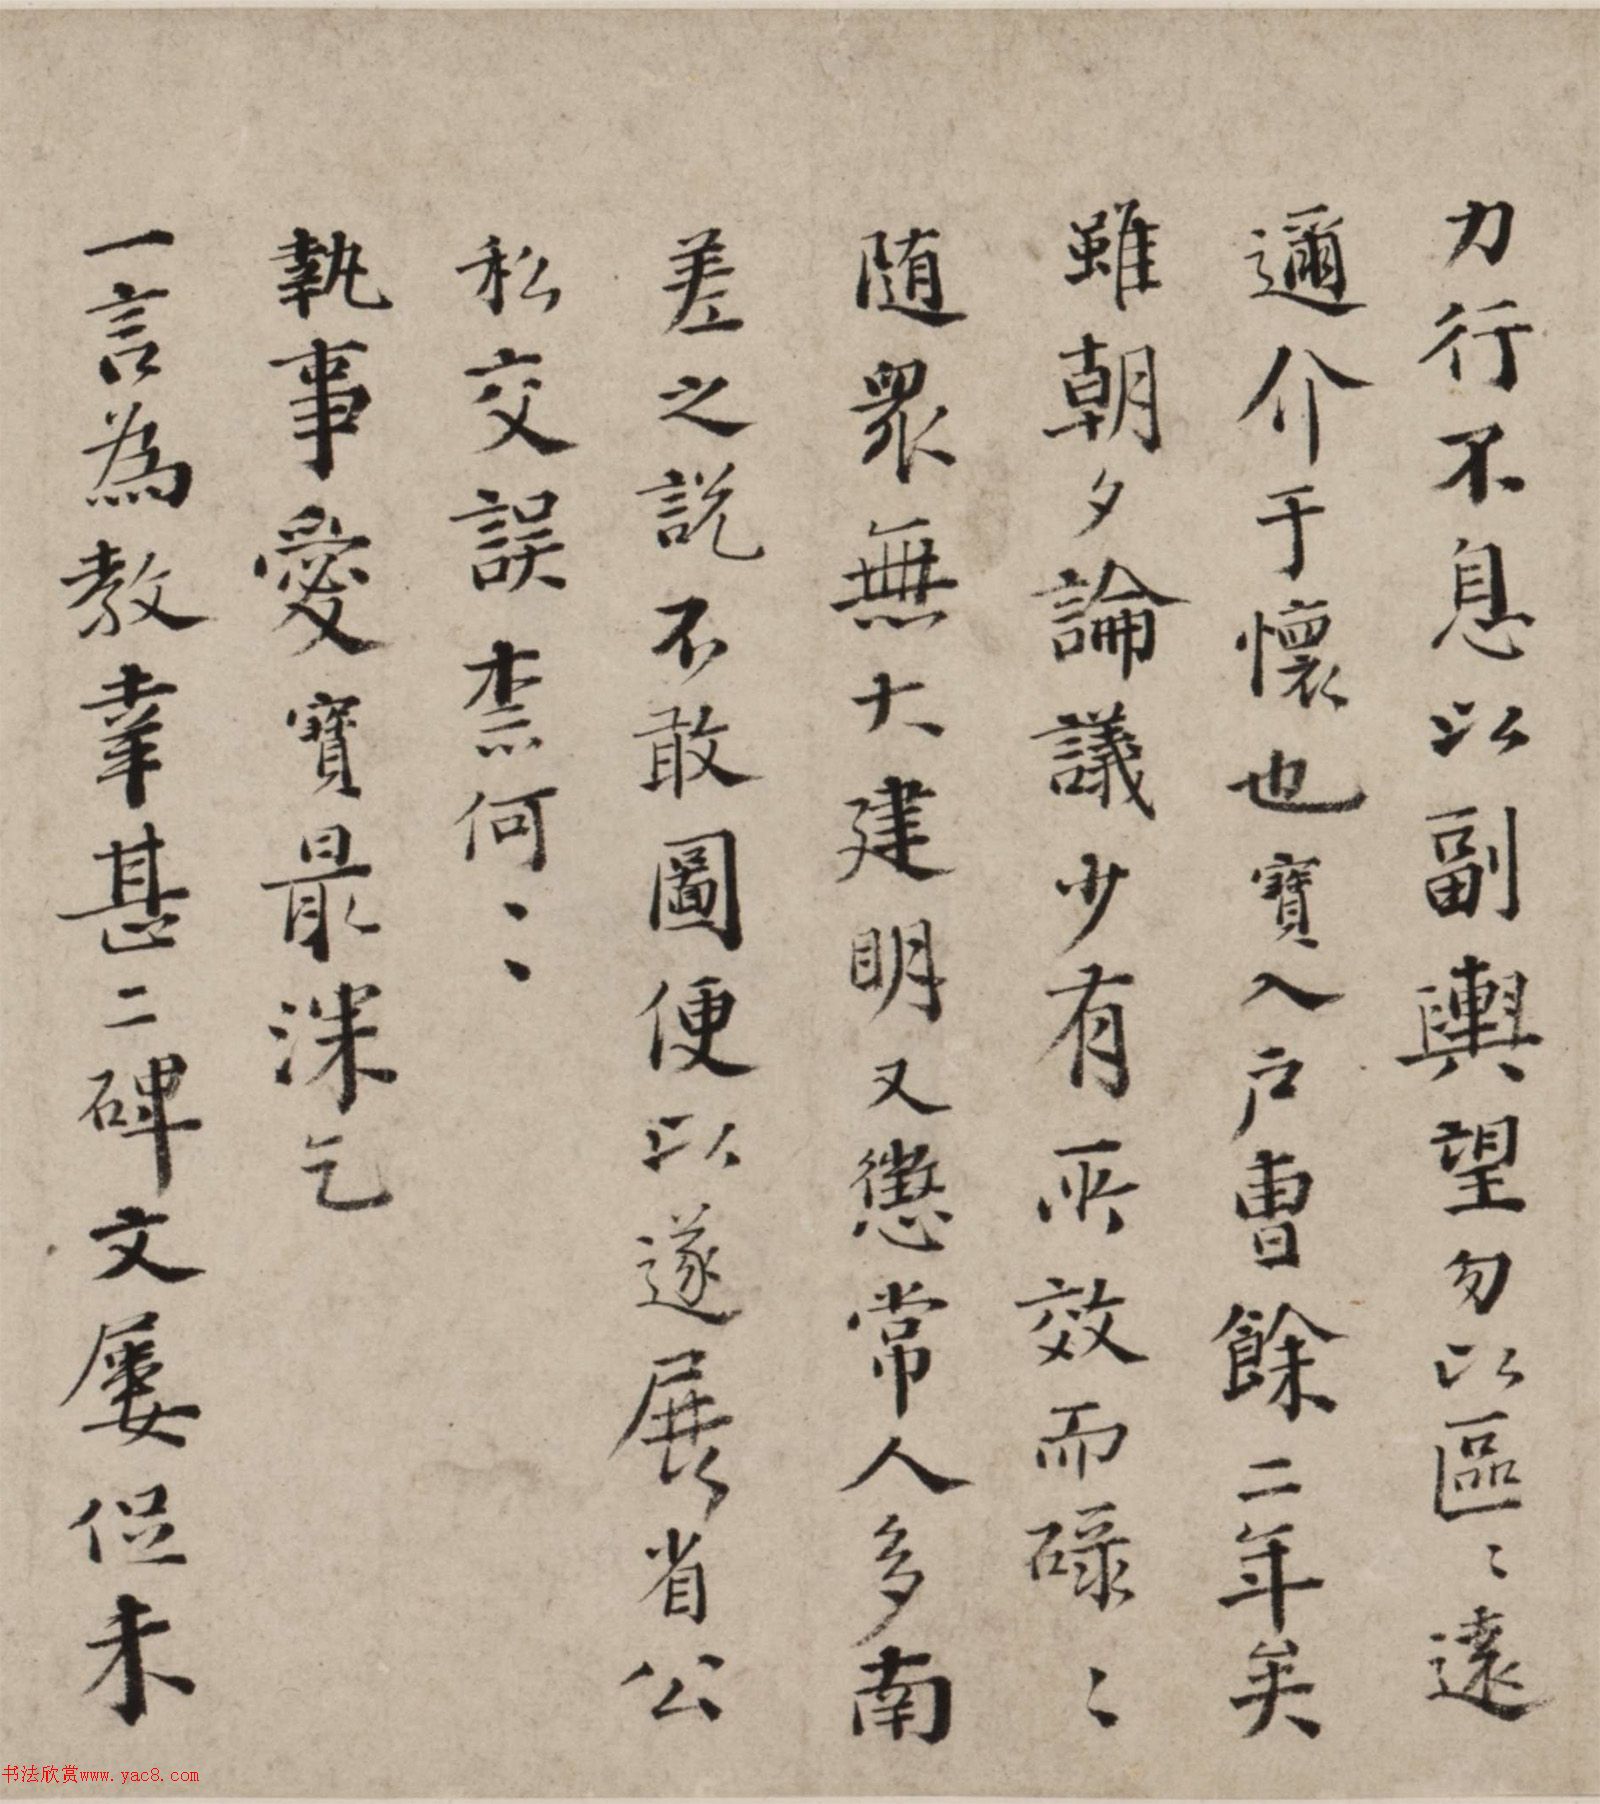 力行不息以副輿望勿以區〻遠
邇介于懷也寶入户曹餘二年矣
雖朝夕論議少有所效而碌〻
隨衆無大建明又懲常人多南
差之説不敢圖便以遂展省公
私交誤柰何〻
執事愛寶最深乞
一言為教幸甚二碑文屢促未
书法欣赏www.yac8.com